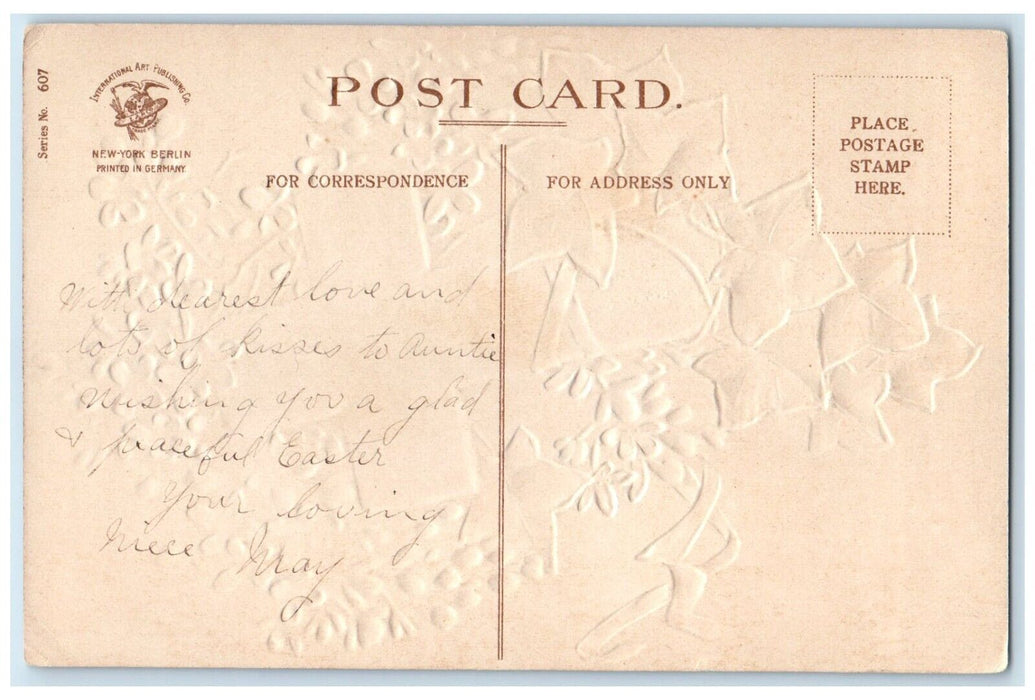 Series No. 607
INTERNATIONAL ART PUBLISHING CO.
NEW-YORK BERLIN
PRINTED IN GERMANY.
POST CARD.
FOR CORRESPONDENCE
FOR ADDRESS ONLY
PLACE
POSTAGE
STAMP
HERE.
With dearest love and
lots of kisses to Auntie
Wishing you a glad
& peaceful Easter
Your loving
Niece May